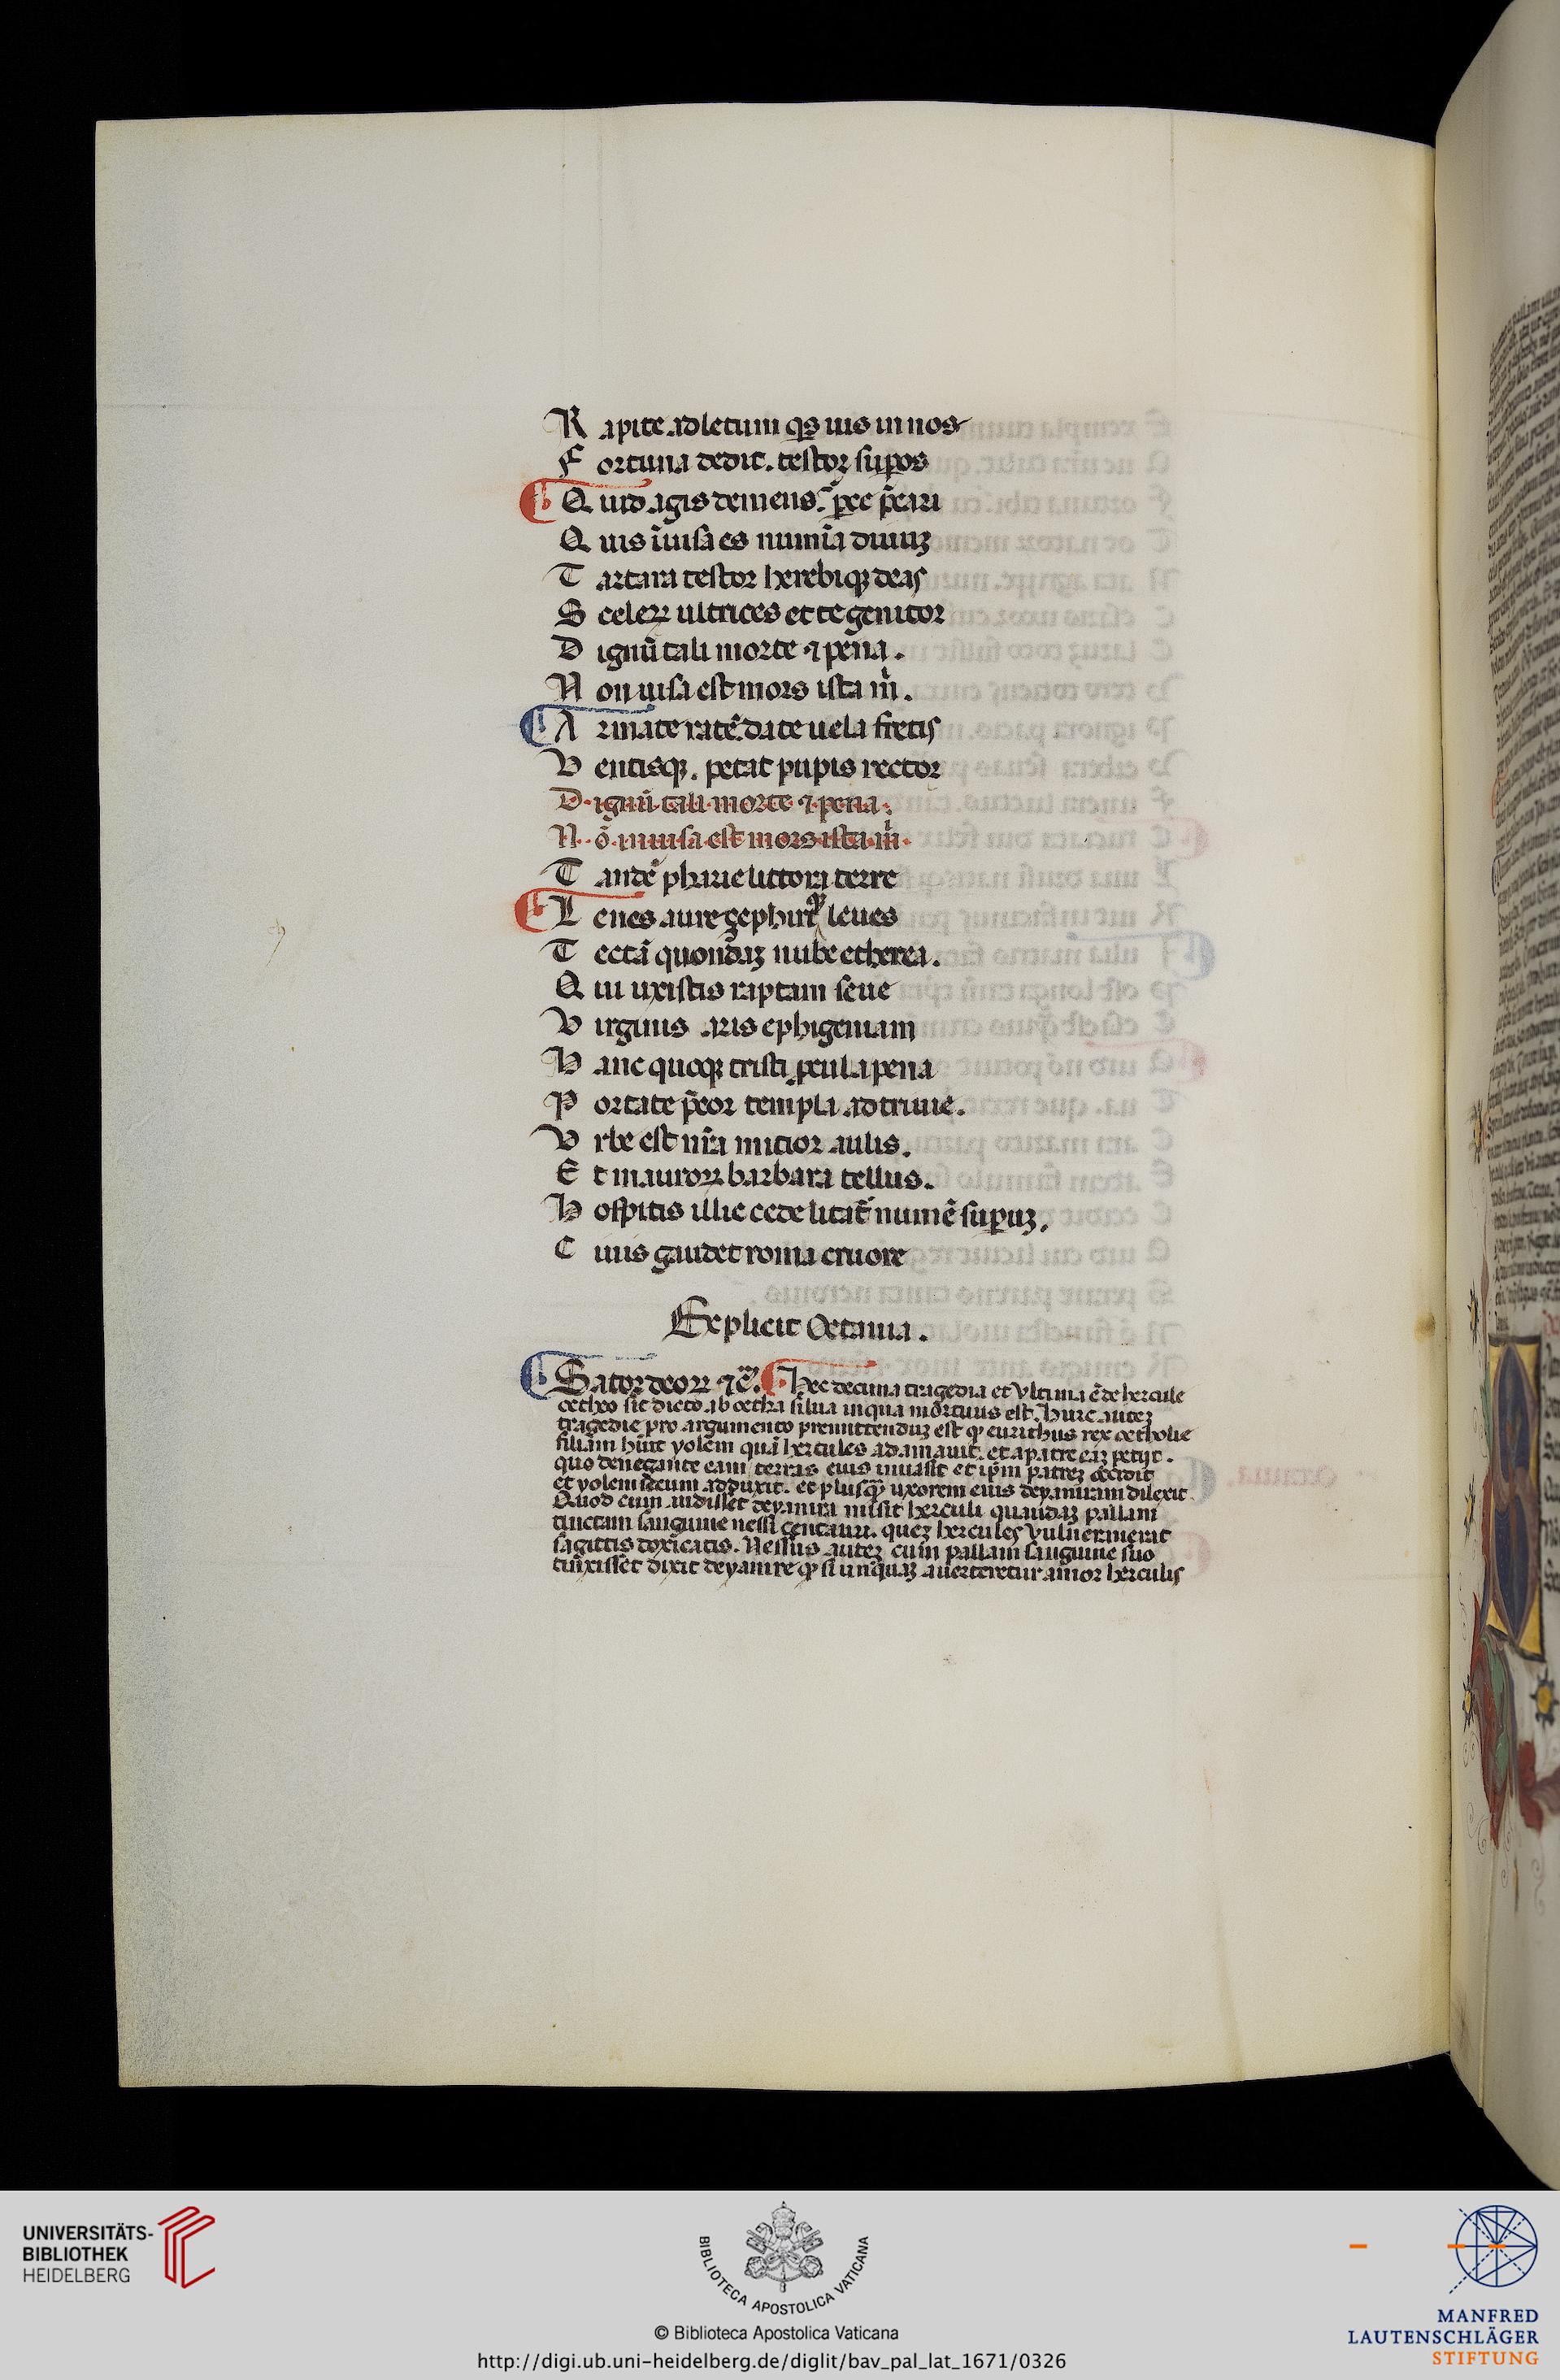 Rapite ad letum qs̄ ius in nos
Fortuna dedit. testor suꝑos
Quid agis demens. p̄ce p̄cari
Quis īuisa es numīa diuuꝫ
Tartara testor herebiqꝫ deas
Sceleꝝ ultrices et te genitor
Dignū tali morte ⁊ pena.
Non uisa est mors ista m̄.
Armate ratē. date uela fretis
Ventisqꝫ. petat pupis rector
Dignū tali morte ⁊ pena.
Nō inuisa est mors ista m̄.
Tandē pharie littora terre
Lenes aure zephiriqꝫ leues
Tectā quondaꝫ nube etherea.
Qui uxistis raptam seue
Virginis aris ephigeniam
Hanc quoqꝫ tristi ꝓcul a pena
Portate p̄cor templa ad triuie.
Vrbe est nr̄a mitior aulis.
Et mauroꝝ barbara tellus.
Hospitis illic cede litat̄ numē suꝑuꝫ.
Cuius gaudet roma cruore
Explicit Octauia.
Sator deoꝝ ⁊c̄. Hec decima tragedia et vltima ē de hercule
oetheo sic dicto ab oetha silua in qua mortuus est. Huic auteꝫ
tragedie pro argumento premittenduꝫ est ꝙ eurithus rex oetholie
filiam hūit yolem quā hercules adamauit. et a patre eaꝫ petijt.
quo denegante eam terras eius inuasit et ip̄m patreꝫ occidit
et yolem secum adduxit. et plusqꝫ uxorem eius deyaniram dilexit.
Quod cum audisset deyanira misit herculi quandaꝫ pallam
tinctam sanguine nessi centauri. queꝫ hercules vulnerauerat
sagittis toxicatis. Nessus auteꝫ cum pallam sanguine suo
tinxisset dixit deyanire ꝙ si unquaꝫ auerteretur amor herculis
UNIVERSITÄTS-
BIBLIOTHEK
HEIDELBERG
BIBLIOTECA APOSTOLICA VATICANA
© Biblioteca Apostolica Vaticana
http://digi.ub.uni-heidelberg.de/diglit/bav_pal_lat_1671/0326
MANFRED
LAUTENSCHLÄGER
STIFTUNG